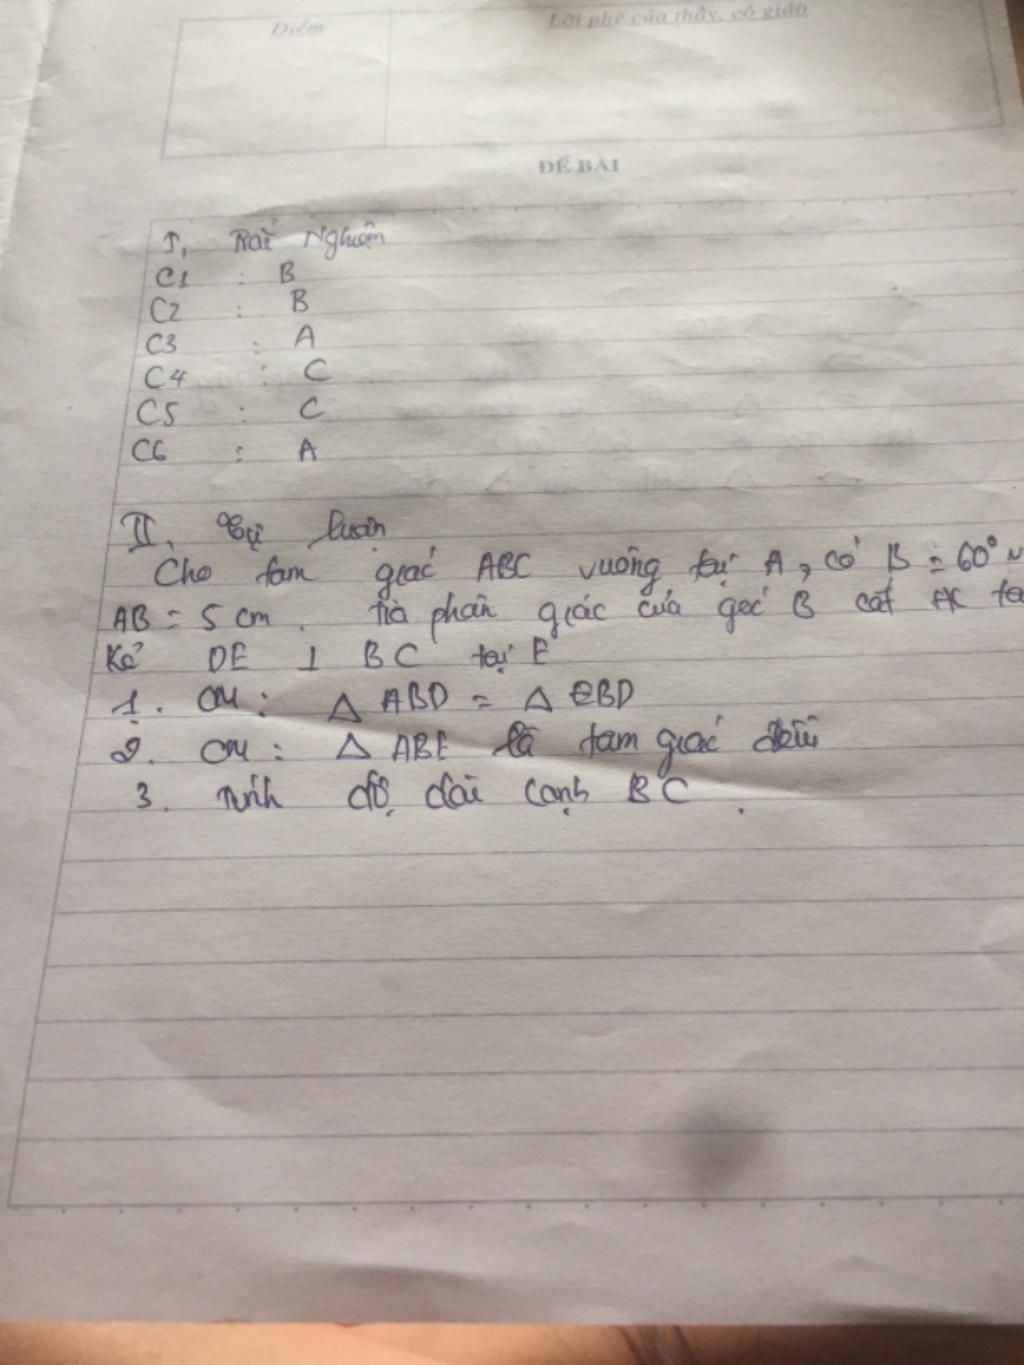 Điểm
Lời phê của thầy, cô giáo
ĐỀ BÀI
I, Trắc Nghiệm
C1 : B
C2 : B
C3 : A
C4 : C
C5 : C
C6 : A
II. Tự luận
Cho tam giác ABC vuông tại A, có B = 60°
AB = 5 cm. Tia phân giác của góc B cắt AC
Kẻ DE ⊥ BC tại E
1. CM: △ ABD = △ EBD
2. CM: △ ABE là tam giác đều
3. Tính độ dài cạnh BC.